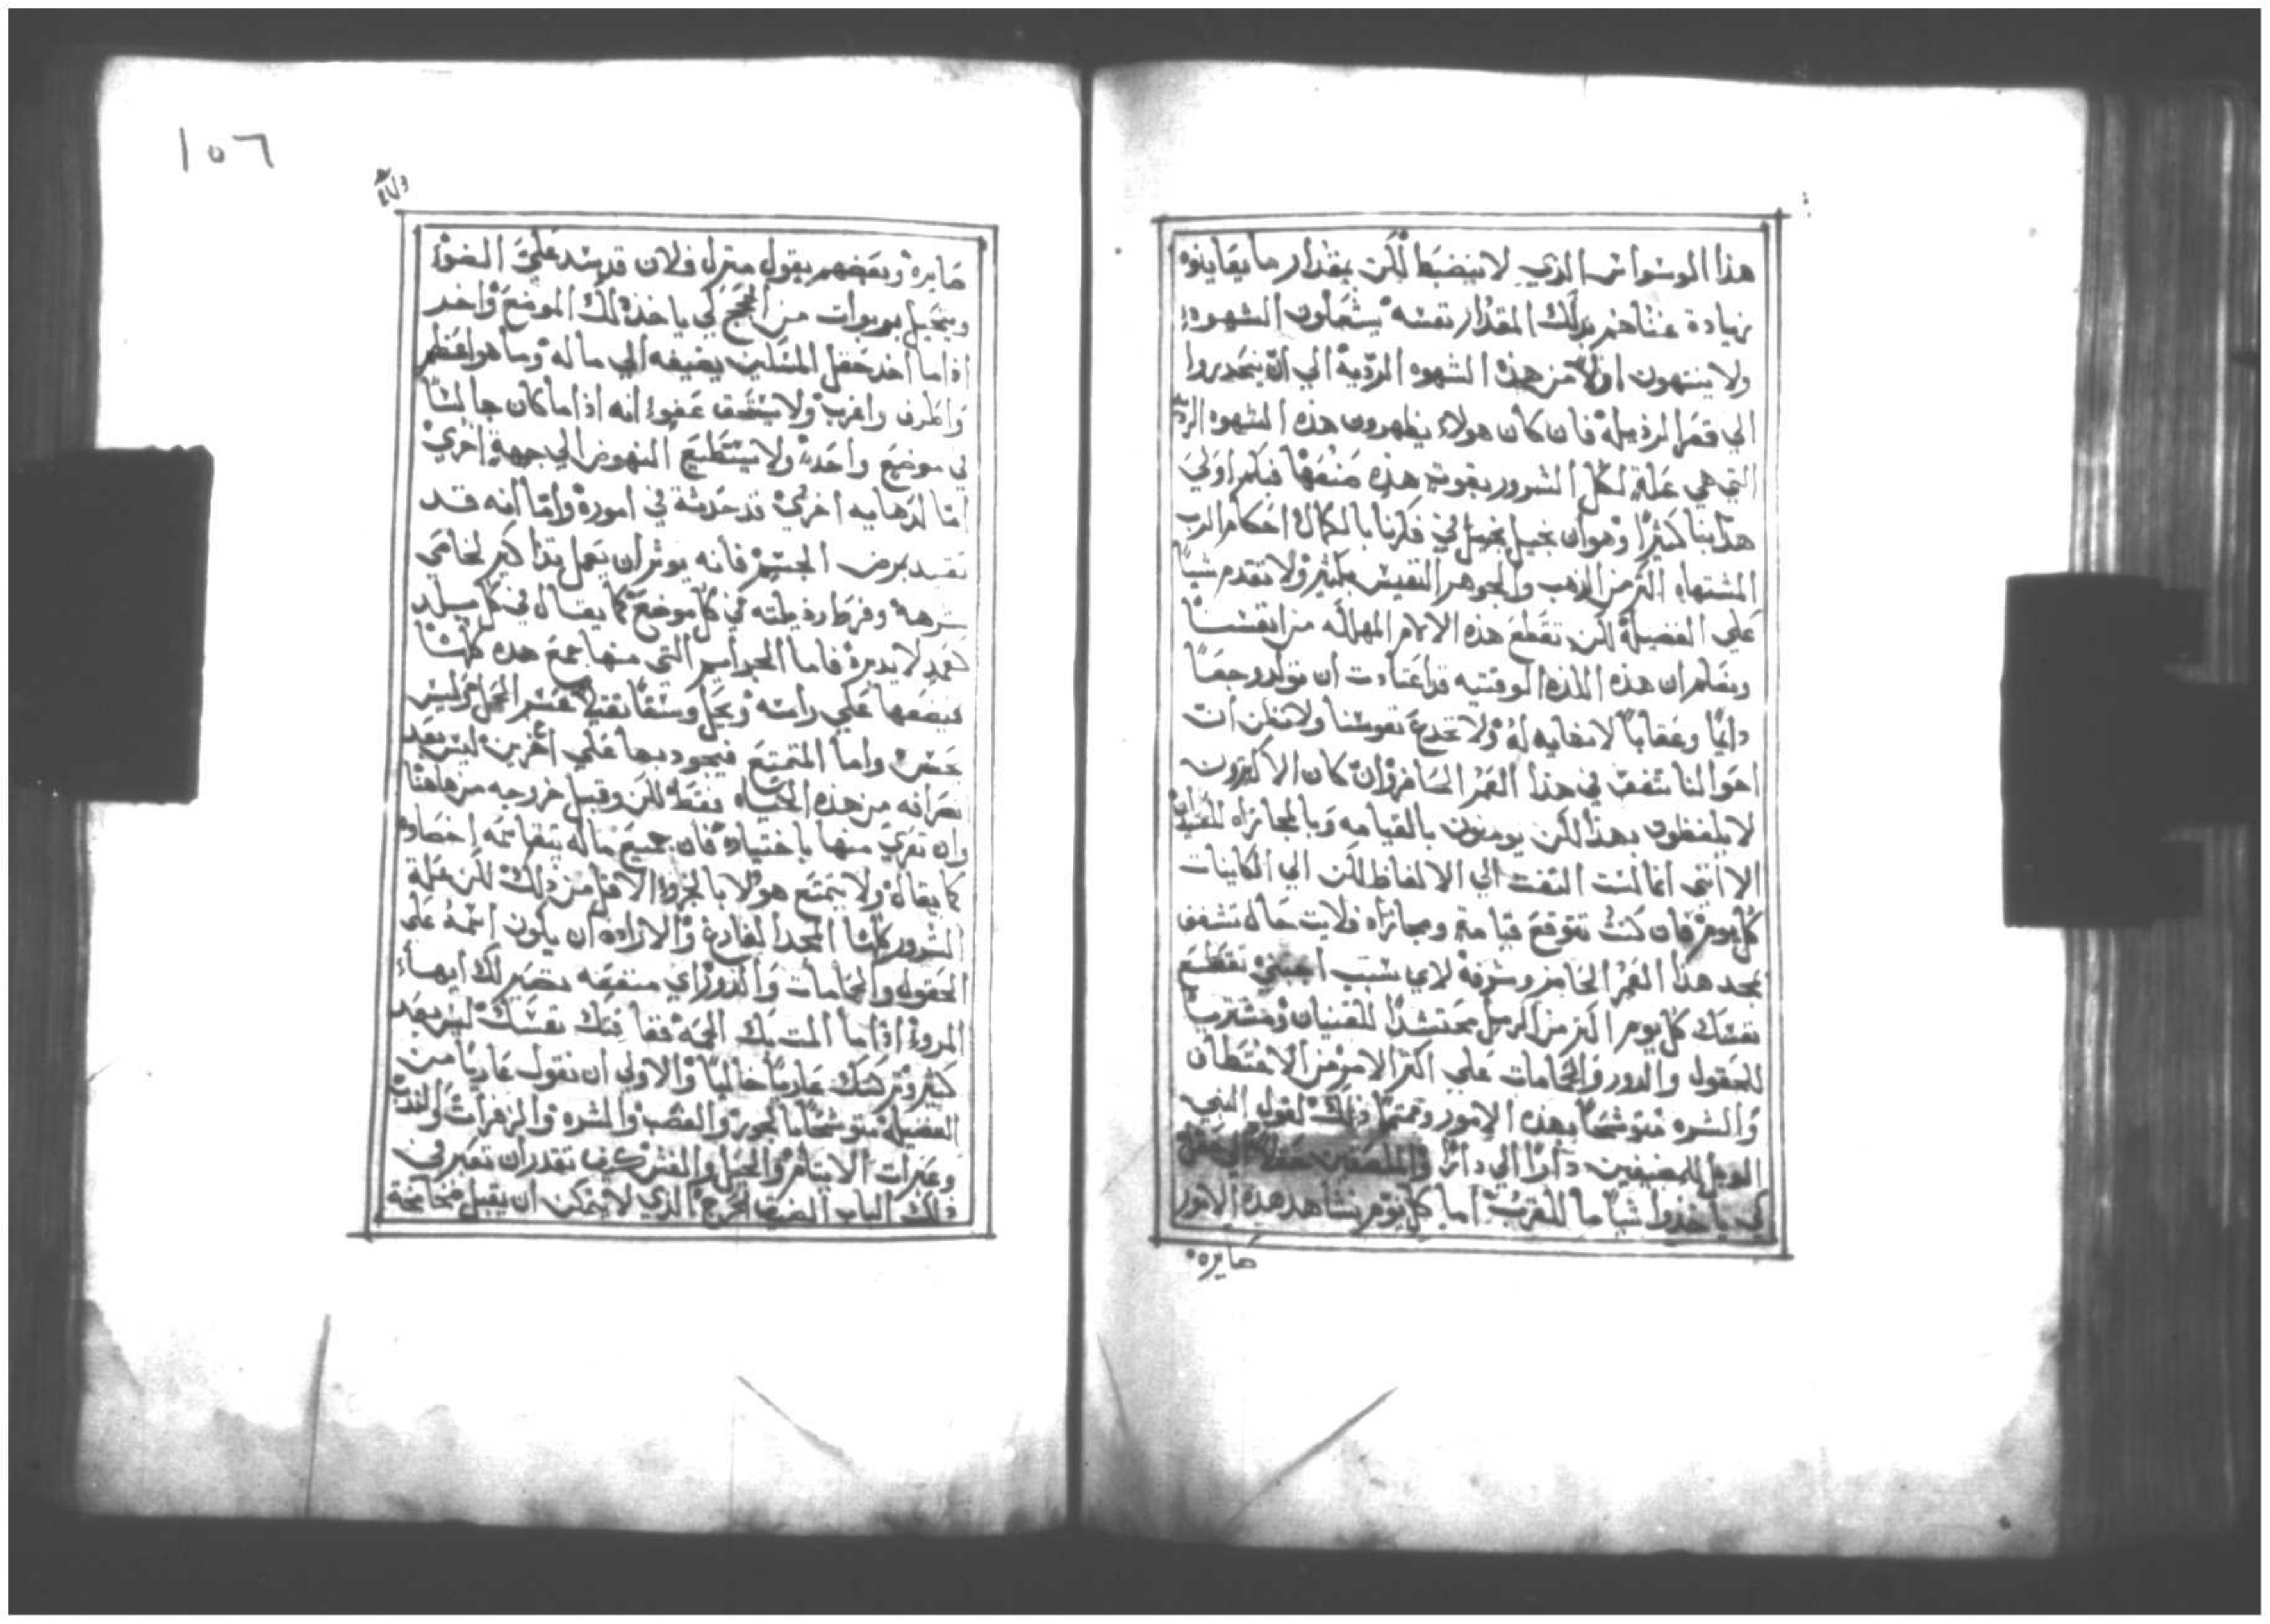 هذا الوسواس الذي لا ينضبط لكن بمقدار ما يعاينوه
زيادة غناهم بذلك المقدار نفسه يشعلون الشهوه
ولا ينتهون اولا من هذه الشهوه الرديه الي ان ينحدروا
الي قعر الرذيله فان كان هولاء يظهرون هذه الشهوه الرديه
التي هي علة لكل الشرور بقوت هذه منعها فبكم اولي
هذا بنا كثيرا وهو ان نجيل في فكرنا بالكمال احكام الرب
المشتهاه اكثر من الذهب والجوهر النفيس بكثير ولا نقدم شيا
علي الفضيله لكن نقطع هذه الالام المهلكه من انفسنا
ونعلم ان هذه اللذه الوقتيه قد اعتادت ان تولد وجعا
دايما وعقابا لا نهايه له ولا نخدع نفوسنا ولا نظن ان
احوالنا تقف في هذا العمر الحاضر وان كان الاكثرون
لا يلفظون بهذا لكن يومنون بالقيامه وبالمجازاه
الا انني انا لست التفت الي الالفاظ لكن الي الكاينات
كل يوم فان كنت تتوقع قيامة ومجازاه فلايت حال تشغف
بمجد هذا العمر الحاضر وشرفه لاي سبب اجبني تقطع
نفسك كل يوم اكثر من الرمل محتشدا للقنيان ومشتريا
للحقول والدور والحمامات علي اكثر الامر من الاختطاف
والشره متوشحا بهذه الامور ومتمما ذلك لقول النبي
الويل للمضيفين دارا الي دار والملصقين حقلا الي حقل
لكي ياخذوا شيا ما للقريب اما كل يوم نشاهد هذه الامور
صايره
١٥٦
صايره وبعضهم يقول منزل فلان قد سد علي الضوء
ويتحيل بربوات من الحجج لكي ياخذ ذلك الموضع واخر
اذا ما اخد حقل المسكين يضيفه الي ماله وما هو اعظم
واطرف واغرب ولا يستحق عفوا انه اذا ما كان جالسا
في موضع واحد ولا يستطيع النهوض الي جهة اخري
اما لدهايه اخري قد حدثة في اموره واما انه قد
تقيد بمرض الجسم فانه يوثر ان يعمل تذاكير لحامي
شرهه وفرط رذيلته في كل موضع كما يقال في كل بلد
لا يديره فاما الجراير التي منها جمع هذه كلها
فيضعها علي راسه ويحمل وسقا ثقيلا عسر الحمل وليس
يحس واما المتمتع فيجود بها علي اخرين ليس بعد
نصرانه من هذه الحياه فقط لكن وقبل خروجه من هاهنا
وان تعري منها باختياره فان جميع ماله يتقاسمه اخصاوه
كما يقال ولا يتمتع هولا بالجزو الاقل من ذلك لكن علة
الشرور كلها المجد الفارغ والاراده ان يكون اسمه علي
الحقول والحمامات والدور اي منفعه تصير لك ايها
المروء اذا ما المت بك الحمه ففاقتك نفسك ليس بعد
كثير وتركتك عاريا خاليا والاولي ان نقول عاريا من
الفضيله متوشحا بالجور والغصب والشره والزفرات والندب
وعبرات الايتام والحيل والغش كيف تقدر ان تعبر في
ذلك الباب الضيق الحرج الذي لا يتمكن ان يقبل ضخامة